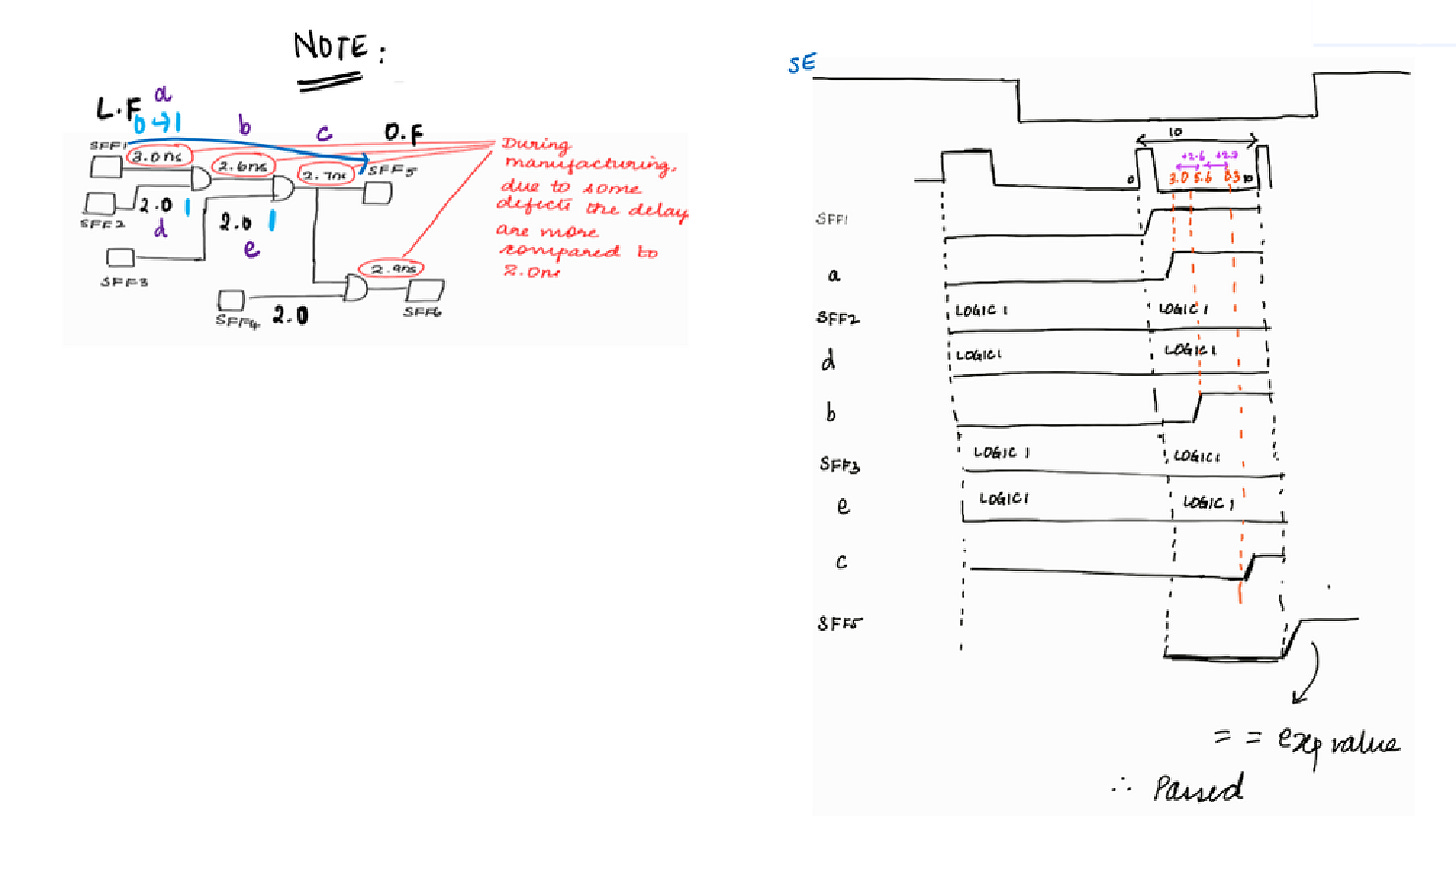 NOTE:
L.F
a
b→1
b
c
O.F
SFF1
3.0ns
2.6ns
2.7ns
SFF5
SFF2
2.0
1
d
2.0
1
e
SFF3
2.9ns
SFF4
2.0
SFF6
During
manufacturing,
due to some
defects the delay
are more
compared to
2.0ns
SE
10
+2.6
+2.7
0
3.0
5.6
8.3
10
SFF1
a
SFF2
LOGIC 1
LOGIC 1
d
LOGIC 1
LOGIC 1
b
SFF3
LOGIC 1
LOGIC 1
e
LOGIC 1
LOGIC 1
c
SFF5
= = exp value
∴ Passed